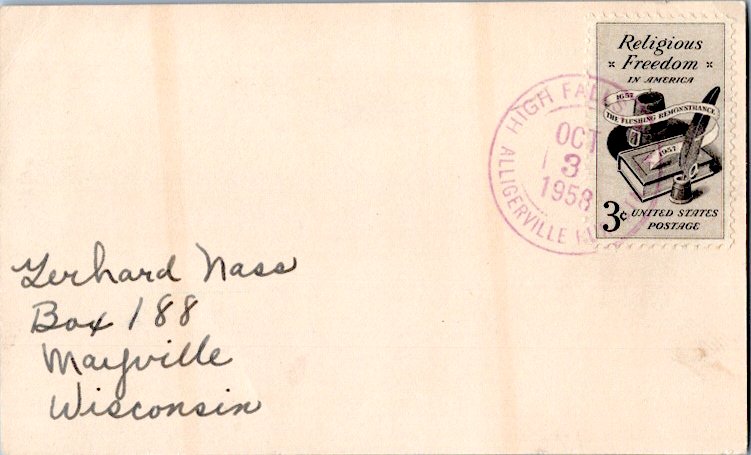 Religious
Freedom
IN AMERICA
1657
THE FLUSHING REMONSTRANCE
1957
3¢ UNITED STATES
POSTAGE
HIGH FALLS
OCT
3
1958
ALLIGERVILLE
Gerhard Nass
Box 188
Mayville
Wisconsin